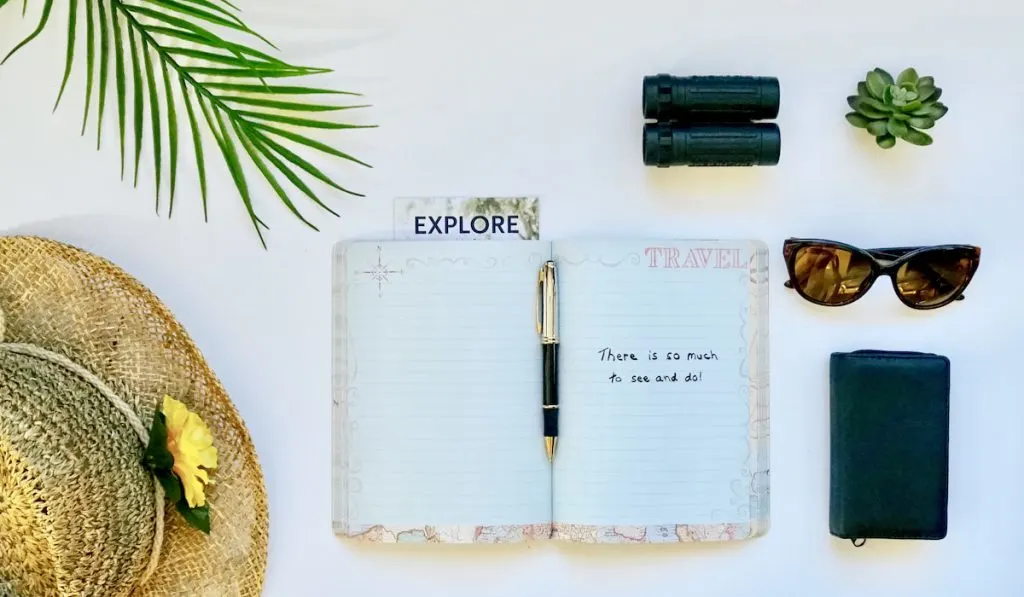 EXPLORE
TRAVEL
There is so much
to see and do!